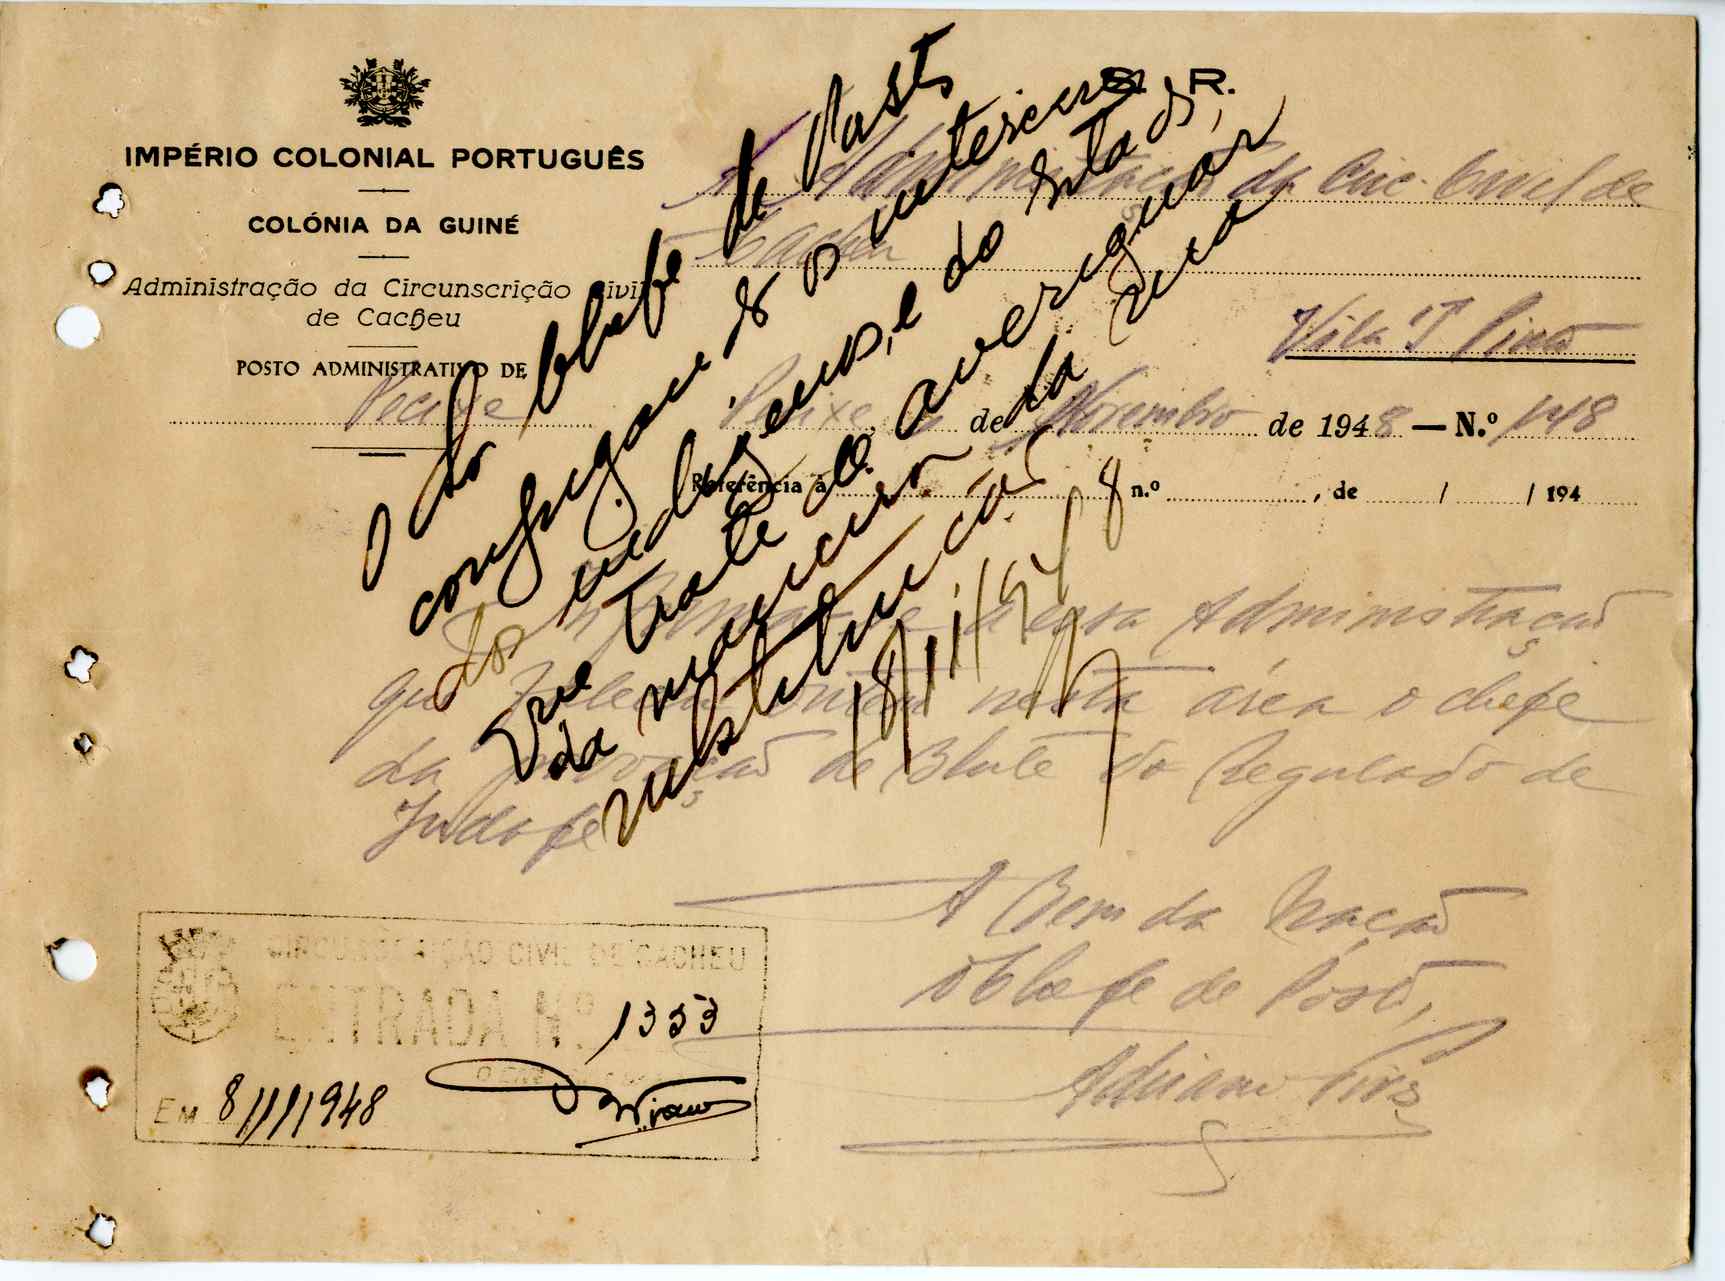 S. R.
IMPÉRIO COLONIAL PORTUGUÊS
COLÓNIA DA GUINÉ
Administração da Circunscrição Civil
de Cacheu
POSTO ADMINISTRATIVO DE
Pecixe
À Administração da Circ. Civil de
Cacheu
Vila T. Pinto
Pecixe, de Novembro de 1948 — N.º 148
Referência à n.º , de / / 194
Informo essa Administração
que faleceu ontem nesta área o chefe
da povoação de do Regulado de
A Bem da Nação
O Chefe de Posto,
Adriano Pires
Ao Chefe de Posto
conjugando os interesses
dos indigenas, e do Estado,
trate de averiguar
da maneira da sua
substituição
18/11/948
CIRCUNSCRIÇÃO CIVIL DE CACHEU
ENTRADA Nº 1353
EM 8/11/1948